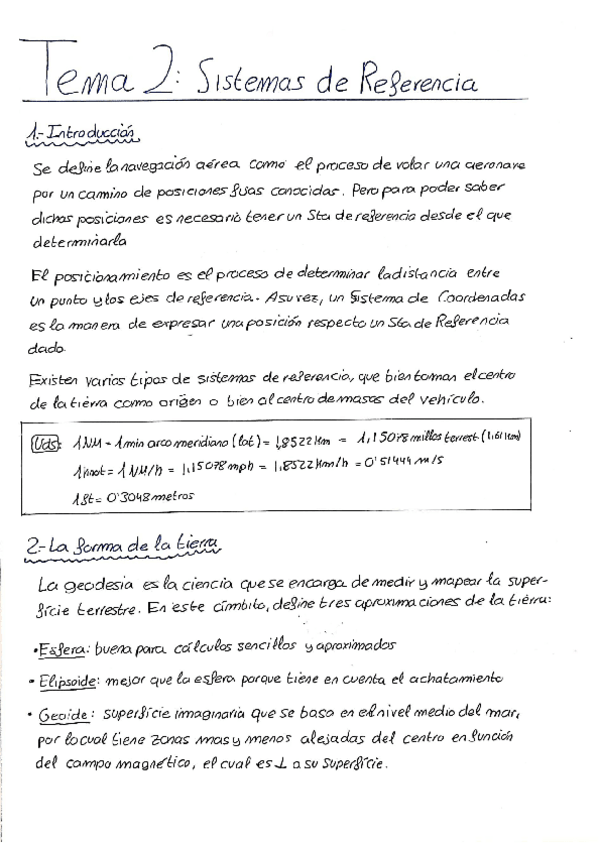 Tema 2: Sistemas de Referencia
1.- Introducción
Se define la navegación aérea como el proceso de volar una aeronave
por un camino de posiciones fijas conocidas. Pero para poder saber
dichas posiciones es necesario tener un Sta de referencia desde el que
determinarla
El posicionamiento es el proceso de determinar la distancia entre
un punto y los ejes de referencia. A su vez, un Sistema de Coordenadas
es la manera de expresar una posición respecto un Sta de Referencia
dado.
Existen varios tipos de sistemas de referencia, que bien toman el centro
de la tierra como origen o bien al centro de masas del vehículo.
Uds: 1 NM - 1 min arco meridiano (lat) = 1,8522 Km = 1,15078 millas terrest (1,61 km)
1 knot = 1 NM/h = 1,15078 mph = 1,8522 Km/h = 0'51444 m/s
1 ft = 0'3048 metros
2.- La forma de la tierra
La geodesia es la ciencia que se encarga de medir y mapear la super-
ficie terrestre. En este ámbito, define tres aproximaciones de la tierra:
• Esfera: buena para cálculos sencillos y aproximados
• Elipsoide: mejor que la esfera porque tiene en cuenta el achatamiento
• Geoide: superficie imaginaria que se basa en el nivel medio del mar,
por lo cual tiene zonas mas y menos alejadas del centro en función
del campo magnético, el cual es ⊥ a su superficie.